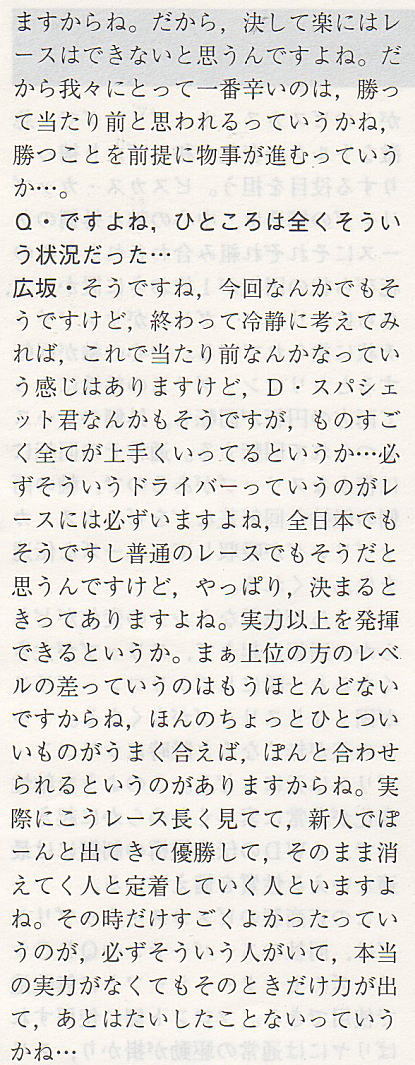 ますからね。だから，決して楽にはレ
ースはできないと思うんですよね。だ
から我々にとって一番辛いのは，勝っ
て当たり前と思われるっていうかね，
勝つことを前提に物事が進むっていう
か…。
Q・ですよね，ひところは全くそうい
う状況だった…
広坂・そうですね，今回なんかでもそ
うですけど，終わって冷静に考えてみ
れば，これで当たり前なんかなってい
う感じはありますけど，D・スパシェ
ット君なんかもそうですが，ものすご
く全てが上手くいってるというか…必
ずそういうドライバーっていうのがレ
ースには必ずいますよね，全日本でも
そうですし普通のレースでもそうだと
思うんですけど，やっぱり，決まると
きってありますよね。実力以上を発揮
できるというか。まぁ上位の方のレベ
ルの差っていうのはもうほとんどない
ですからね，ほんのちょっとひとつい
いものがうまく合えば，ぽんと合わせ
られるというのがありますからね。実
際にこうレース長く見てて，新人でぽ
ーんと出てきて優勝して，そのまま消
えてく人と定着していく人といますよ
ね。その時だけすごくよかったってい
うのが，必ずそういう人がいて，本当
の実力がなくてもそのときだけ力が出
て，あとはたいしたことないっていう
かね…